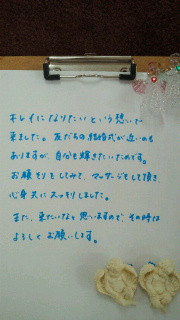 キレイになりたいという想いで
来ました。友だちの結婚式が近いのも
ありますが、自分も輝きたいためです。
お顔そりをしてみて、マッサージもして頂き、
心身共にスッキリしました。
また、来たいなと思いますので、その時は
よろしくお願いします。